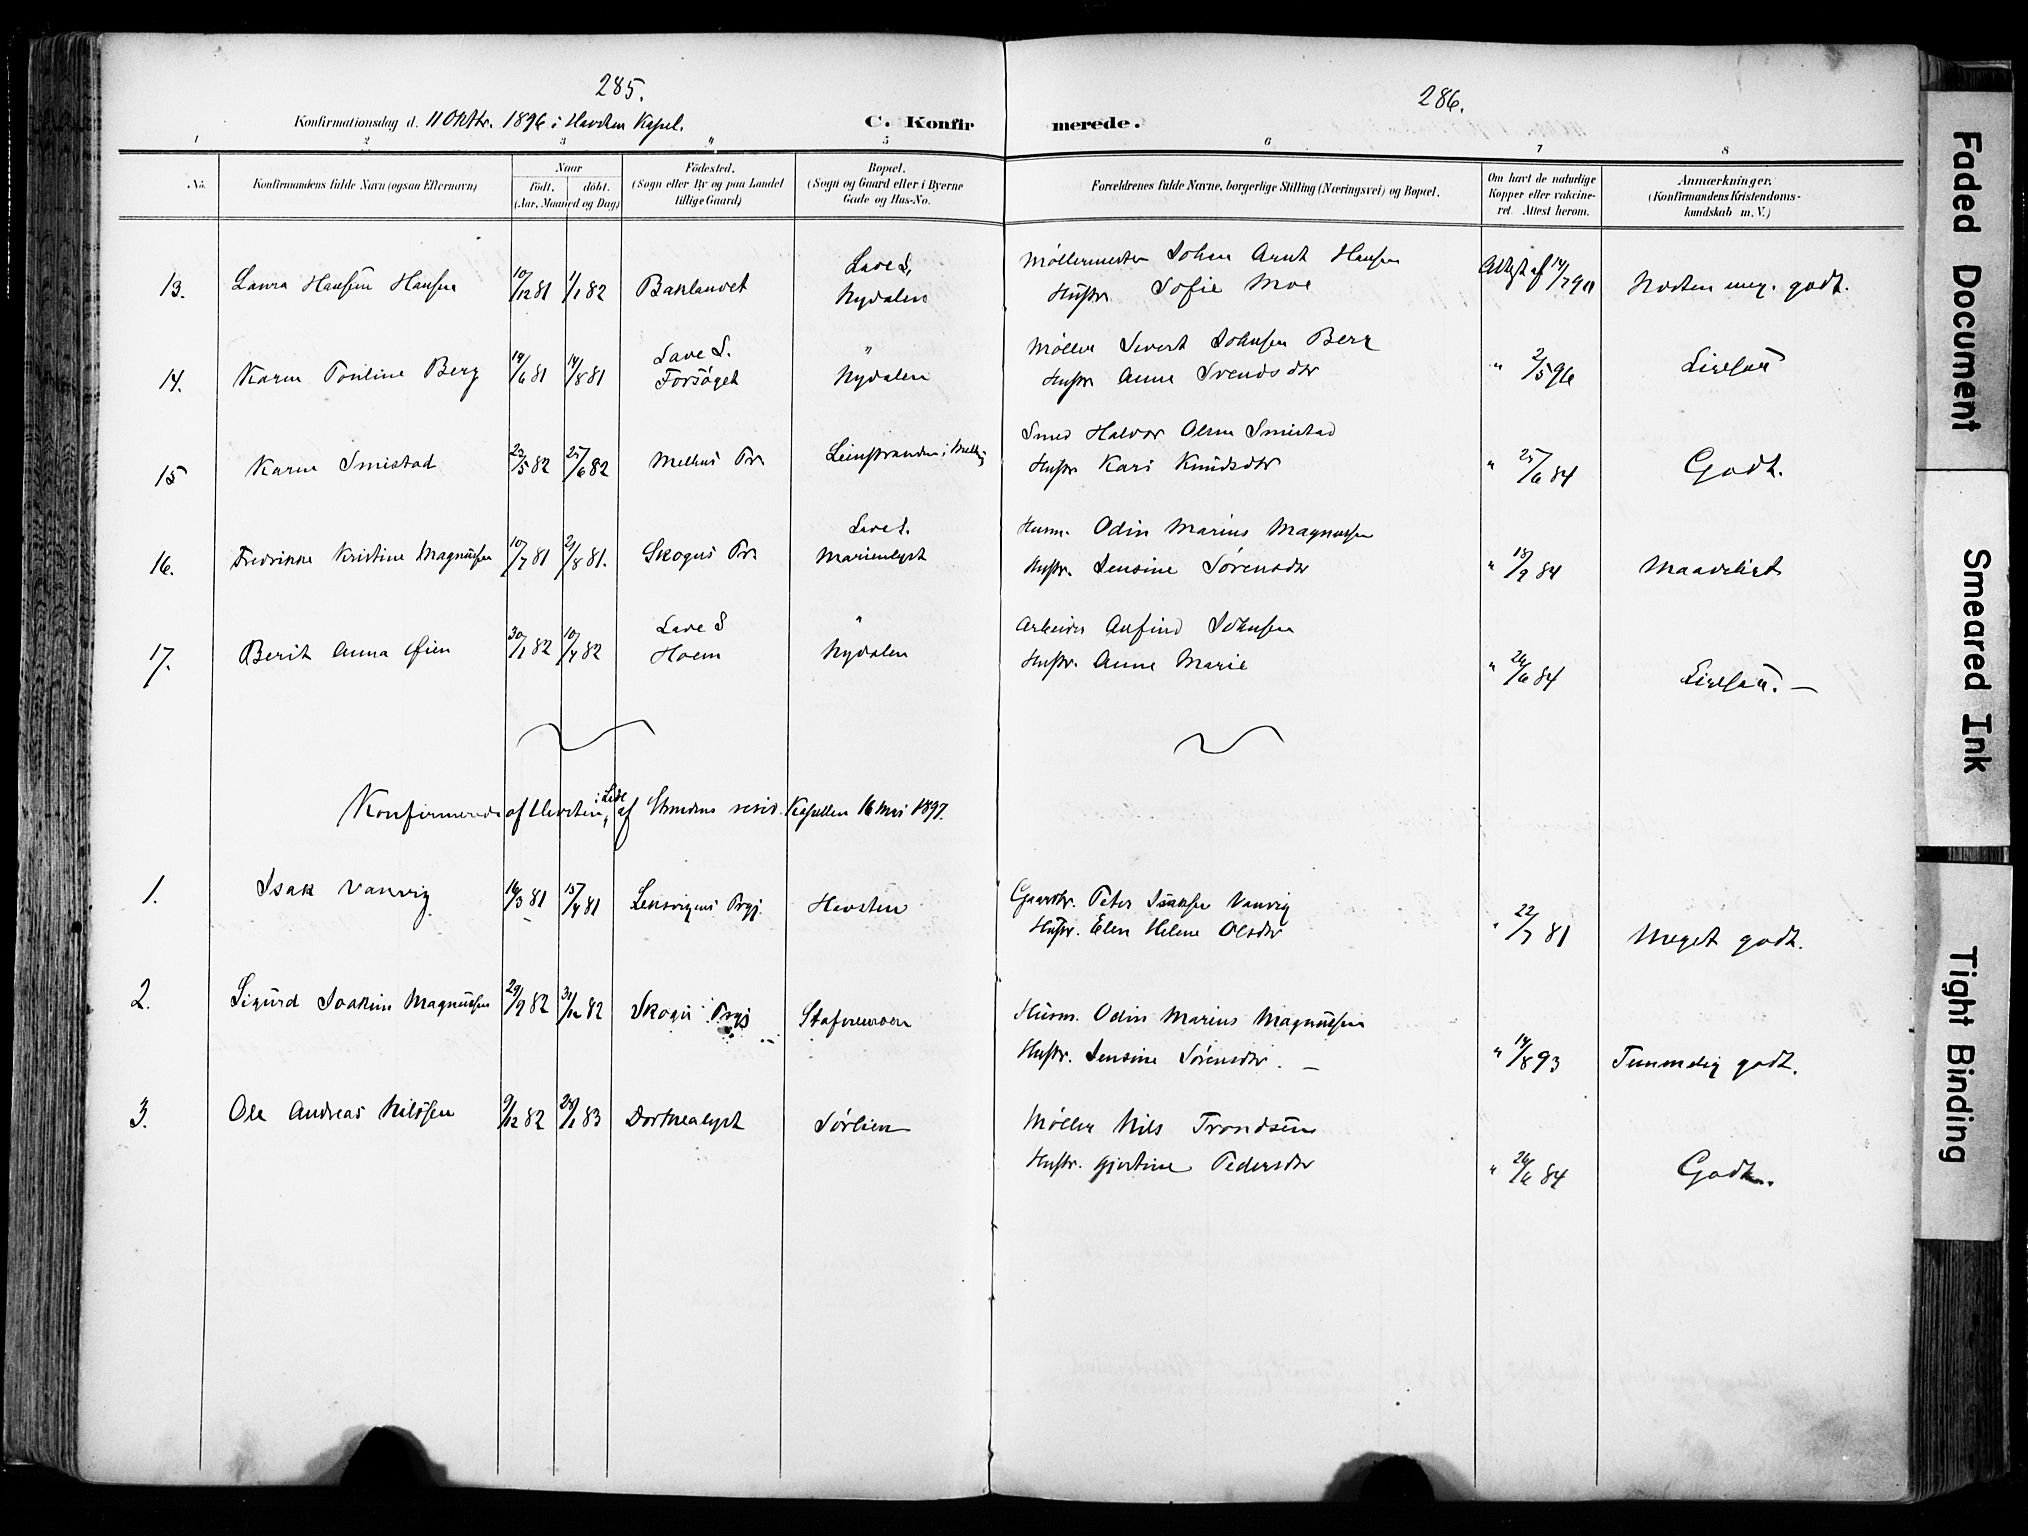 285.
286.
Konfirmationsdag d. 11 Oktbr. 1896 i Havsten Kapel.
C. Konfirmerede.
1 2 3 4 5 6 7 8
No.
Konfirmandens fulde Navn (ogsaa Efternavn)
Naar
født. døbt.
(Aar, Maaned og Dag)
Fødested.
(Sogn eller By og paa Landet
tillige Gaard)
Bopæl.
(Sogn og Gaard eller i Byerne
Gade og Hus-No.
Forældrenes fulde Navne, borgerlige Stilling (Næringsvei) og Bopæl.
Om havt de naturlige
Kopper eller vakcine-
ret. Attest herom.
Anmærkninger.
(Konfirmandens Kristendoms-
kundskab m. V.)
13. Laura Hansen Hansen 10/12 81 1/1 82 Baklandet Lade S. Nydalen
Møllermester Johan Arnt Hansen
Hustr. Sofie Moe
Attest af 14/7 90 Næsten meg. godt.
14. Karen Pouline Berg 19/6 81 14/8 81 Lade S. Forsøget " Nydalen
Møller Sivert Johnsen Berg
Hustr. Anne Svendsdtr
" 2/5 96
15 Karen Smistad 23/5 82 25/6 82 Melhus Pr. Leinstranden i Melhus
Smed Halvor Olsen Smistad
Hustr. Kari Knudsdtr
" 25/6 84 Godt.
16. Fredrikke Kristine Magnussen 10/7 81 21/8 81. Skogns Pr. Lade S. Marienlyst
Husm. Odin Marius Magnussen
Hustr. Jensine Sørensdtr
" 18/9 84 Maadeligt
17. Berit Anna Øien 30/1 82 10/4 82 Lade S Hoem " Nydalen
Arbeider Anfind Johnsen
Hustr. Anne Marie
" 26/6 84
Konfirmerede af Havsten, i Lade af Strindens resid. Kapellan 16 Mai 1897.
1. Isak Vanvig 16/3 81 15/4 81 Lensvigens Prgj. Havsten
Gaardbr. Peter Isaksen Vanvig
Hustr. Elen Helene Olsdtr
" 22/7 81 Meget godt.
2. Sigurd Joakim Magnussen 29/9 82 31/12 82 Skogn Prgj Stafnemoen
Husm. Odin Marius Magnussen
Hustr. Jensine Sørensdtr.
" 14/8 93 Temmelig godt.
3. Ole Andreas Nilssen 9/12 82 28/1 83 Dorthealyst Sørlien
Møller Nils Trondsen
Hustr. Gjertine Pedersdtr
" 26/6 84 Godt.
Faded Document
Smeared Ink
Tight Binding